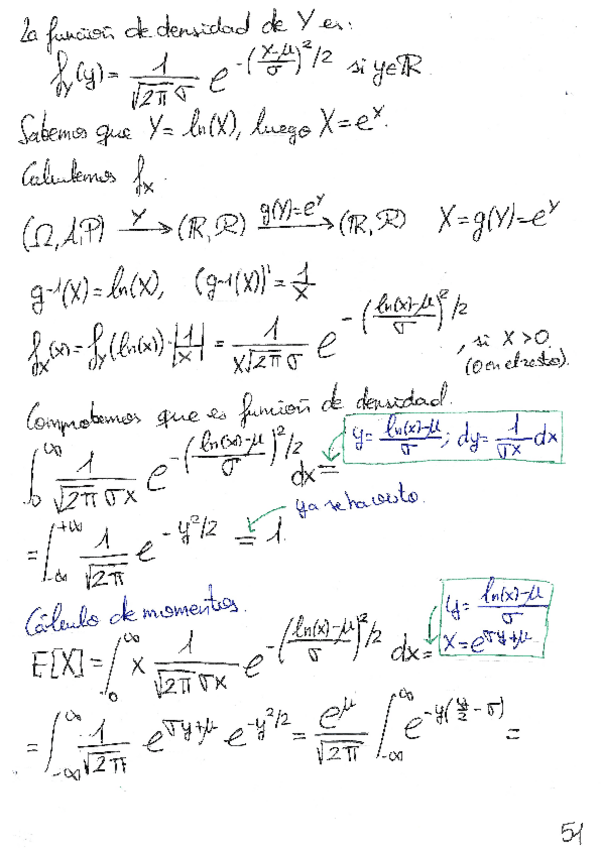 La función de densidad de Y es:
f_Y(y) = 1/(√(2π) σ) e^(-((x-μ)/σ)²/2) si y∈ℝ.
Sabemos que Y = ln(X), luego X = e^X.
Calculemos f_X.
(Ω, A, P) →^Y (ℝ, ℛ) →^(g(Y)=e^Y) (ℝ, ℛ) X = g(Y) = e^Y
g^-1(X) = ln(X), (g^-1(X))' = 1/X
f_X(x) = f_Y(ln(x))·|1/x| = 1/(x√(2π) σ) e^(-((ln(x)-μ)/σ)²/2), si X>0. (0 en el resto).
Comprobemos que es función de densidad.
∫_0^∞ 1/(√(2π) σx) e^(-((ln(x)-μ)/σ)²/2) dx =
y = (ln(x)-μ)/σ; dy = 1/(σx) dx
ya se ha visto.
= ∫_-∞^+∞ 1/√(2π) e^(-y²/2) = 1.
Cálculo de momentos.
y = (ln(x)-μ)/σ
X = e^(σy+μ)
E[X] = ∫_0^∞ x 1/(√(2π) σx) e^(-((ln(x)-μ)/σ)²/2) dx =
= ∫_-∞^∞ 1/√(2π) e^(σy+μ) e^(-y²/2) = e^μ/√(2π) ∫_-∞^∞ e^(-y(y/2-σ)) =
51